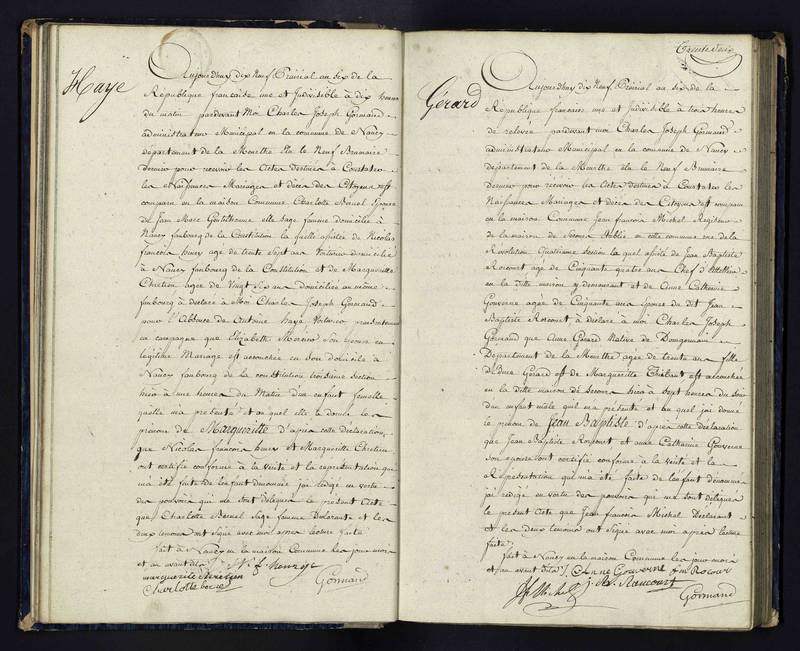 Haye
Aujourdhuy dix neuf Prairial an six de la
République francaise une et Indivisible à dix heures
du matin pardevant Moi Charles Joseph Gormand
administrateur Municipal en la commune de Nancy
département de la Meurthe Elu le Neuf Brumaire
dernier pour recevoir les Actes destinés à Constater
les Naissances Mariages et décès des Citoyens est
comparu en la maison Commune Charlotte Bernel Epouse
de Jean Marc elle Sage femme domiciliée à
Nancy faubourg de la Constitution la quelle assistée de Nicolas
francois age de trente Sept ans Voiturier domicilié
à Nancy faubourg de la Constitution et de Marguerite
Chretien agée de Vingt Six ans domiciliée au même
faubourg à déclaré à Moi Charles Joseph Gormand
pour l'Absence de Antoine haye Voiturier présentement
en campagne que Elizabeth son Epouse en
légitime Mariage est accouchée en son domicile à
Nancy faubourg de la constitution troisième Section
hier à une heure du Matin d'un enfant femelle
quelle ma présenté et au quel elle a donné les
prénom de Marguerite d'après cette déclaration,
que Nicolas francois et Marguerite Chretien
ont certifié conforme à la Verité et la représentation qui
ma été faite de lenfant dénommé jai rédigé en vertu
des pouvoirs qui me sont délégués le présent Acte
que Charlotte Bernel Sage femme Déclarante et les
deux temoins ont Signé avec moi apres lecture faite
fait à Nancy en la maison Commune les jour mois
et an avant dits
marguerite
Charlotte Gormand
Trente Deux
Gérard
Aujourdhuy dix Neuf Prairial an six de la
République francaise une et Indivisible à trois heures
de relevée pardevant moi Charles Joseph Gormand
administrateur Municipal en la commune de Nancy
département de la Meurthe élu le neuf Brumaire
dernier pour recevoir les Actes destinés à Constater les
Naissances Mariages et décès des Citoyens est comparu
en la maison Commune Jean francois Michel Regisseur
de la maison de Secours Etablie en cette commune rue de la
Révolution Quatrieme section le quel assisté de Jean Baptiste
Roucourt agé de Cinquante quatre ans Chef d'Attellier
en la ditte maison y demeurant et de Anne Catherine
Gouverne agée de Cinquante ans épouse du dit Jean
Baptiste Roucourt, à déclaré à moi Charles Joseph
Gormand que Anne Gérard Native de
Département de la Meurthe agee de trente ans fille
de Gérard et de Marguerite Thiebaut est accouchée
en la ditte maison de Secours hier à Sept heures du Soir
d'un enfant mâle qui ma présenté et au quel jai donné
le prénom de Jean Baptiste d'après cette déclaration
que Jean Baptiste Roucourt et anne Catherine Gouverne
son epouse ont certifié conforme à la verité et la
Réprésentation qui ma été faite de lenfant dénommé
jai rédigé en vertu des pouvoirs qui me sont délégués
le présent Acte que Jean francois Michel Déclarant
et les deux temoins ont Signé avec moi apres lecture
faite
fait à Nancy en la maison Commune les jour mois
et an avant dits Anne Gouverne
Roucourt Gormand